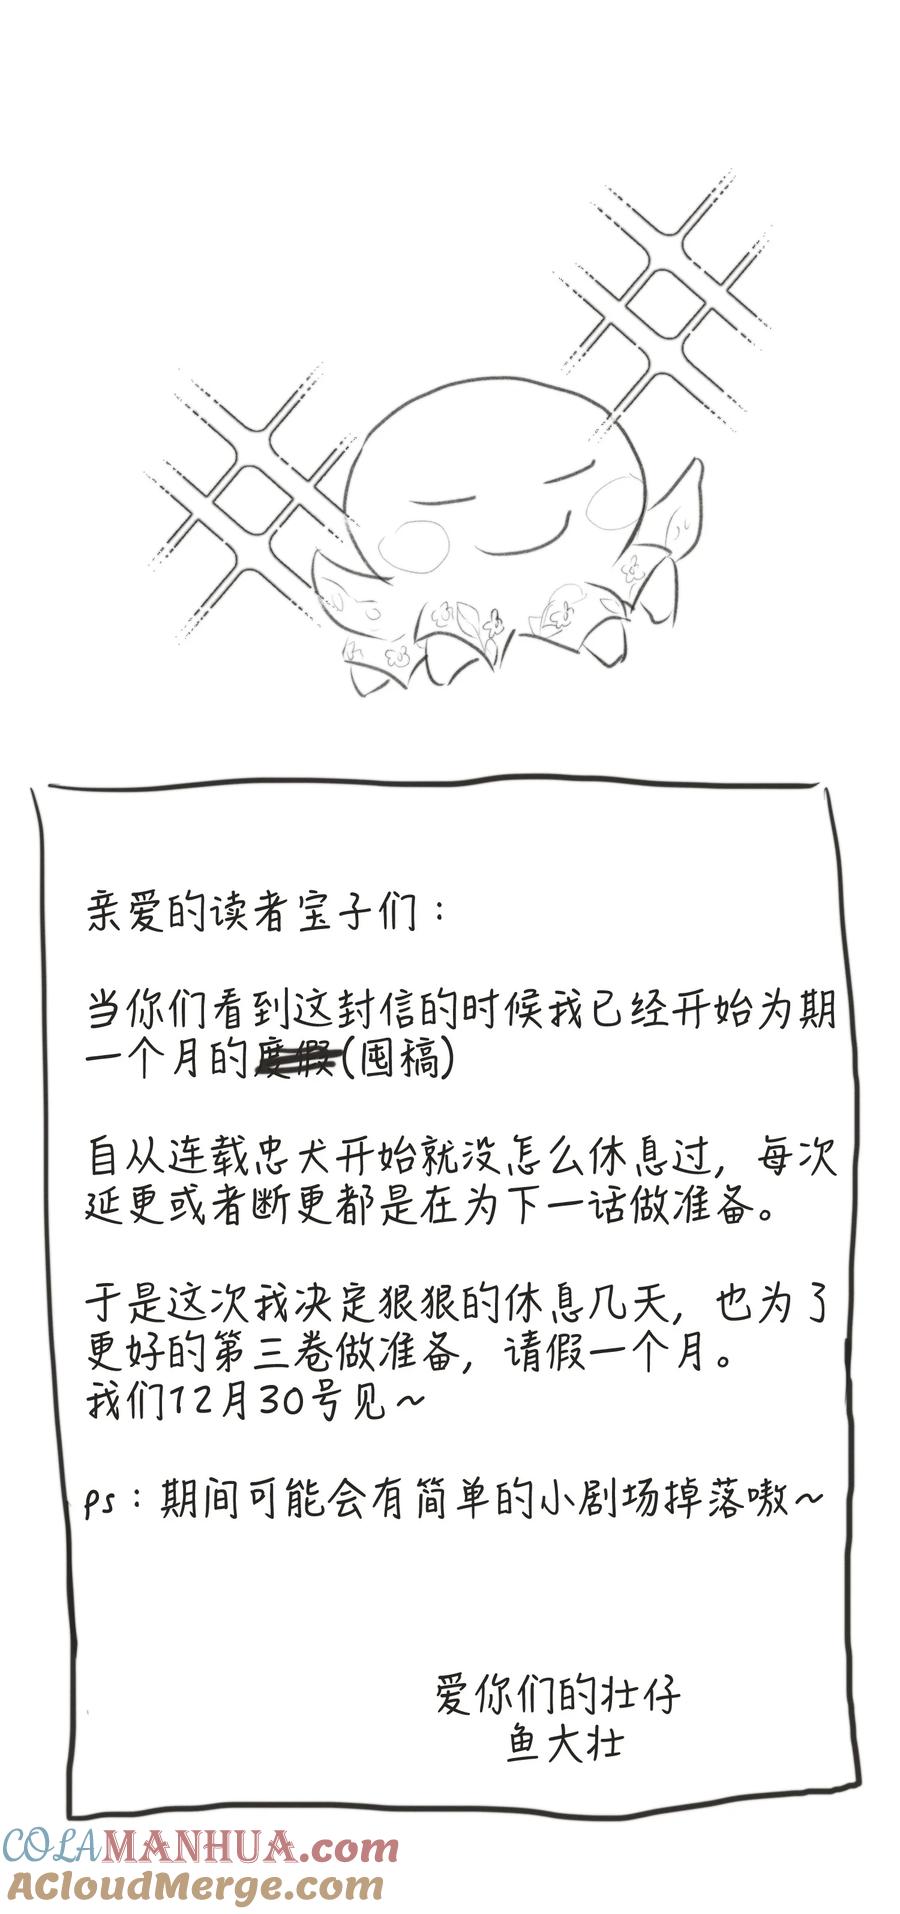 亲爱的读者宝子们：
当你们看到这封信的时候我已经开始为期
一个月的度假(囤稿)
自从连载忠犬开始就没怎么休息过，每次
延更或者断更都是在为下一话做准备。
于是这次我决定狠狠的休息几天，也为了
更好的第三卷做准备，请假一个月。
我们12月30号见~
ps：期间可能会有简单的小剧场掉落嗷~
爱你们的壮仔
鱼大壮
COLAMANHUA.com
ACloudMerge.com